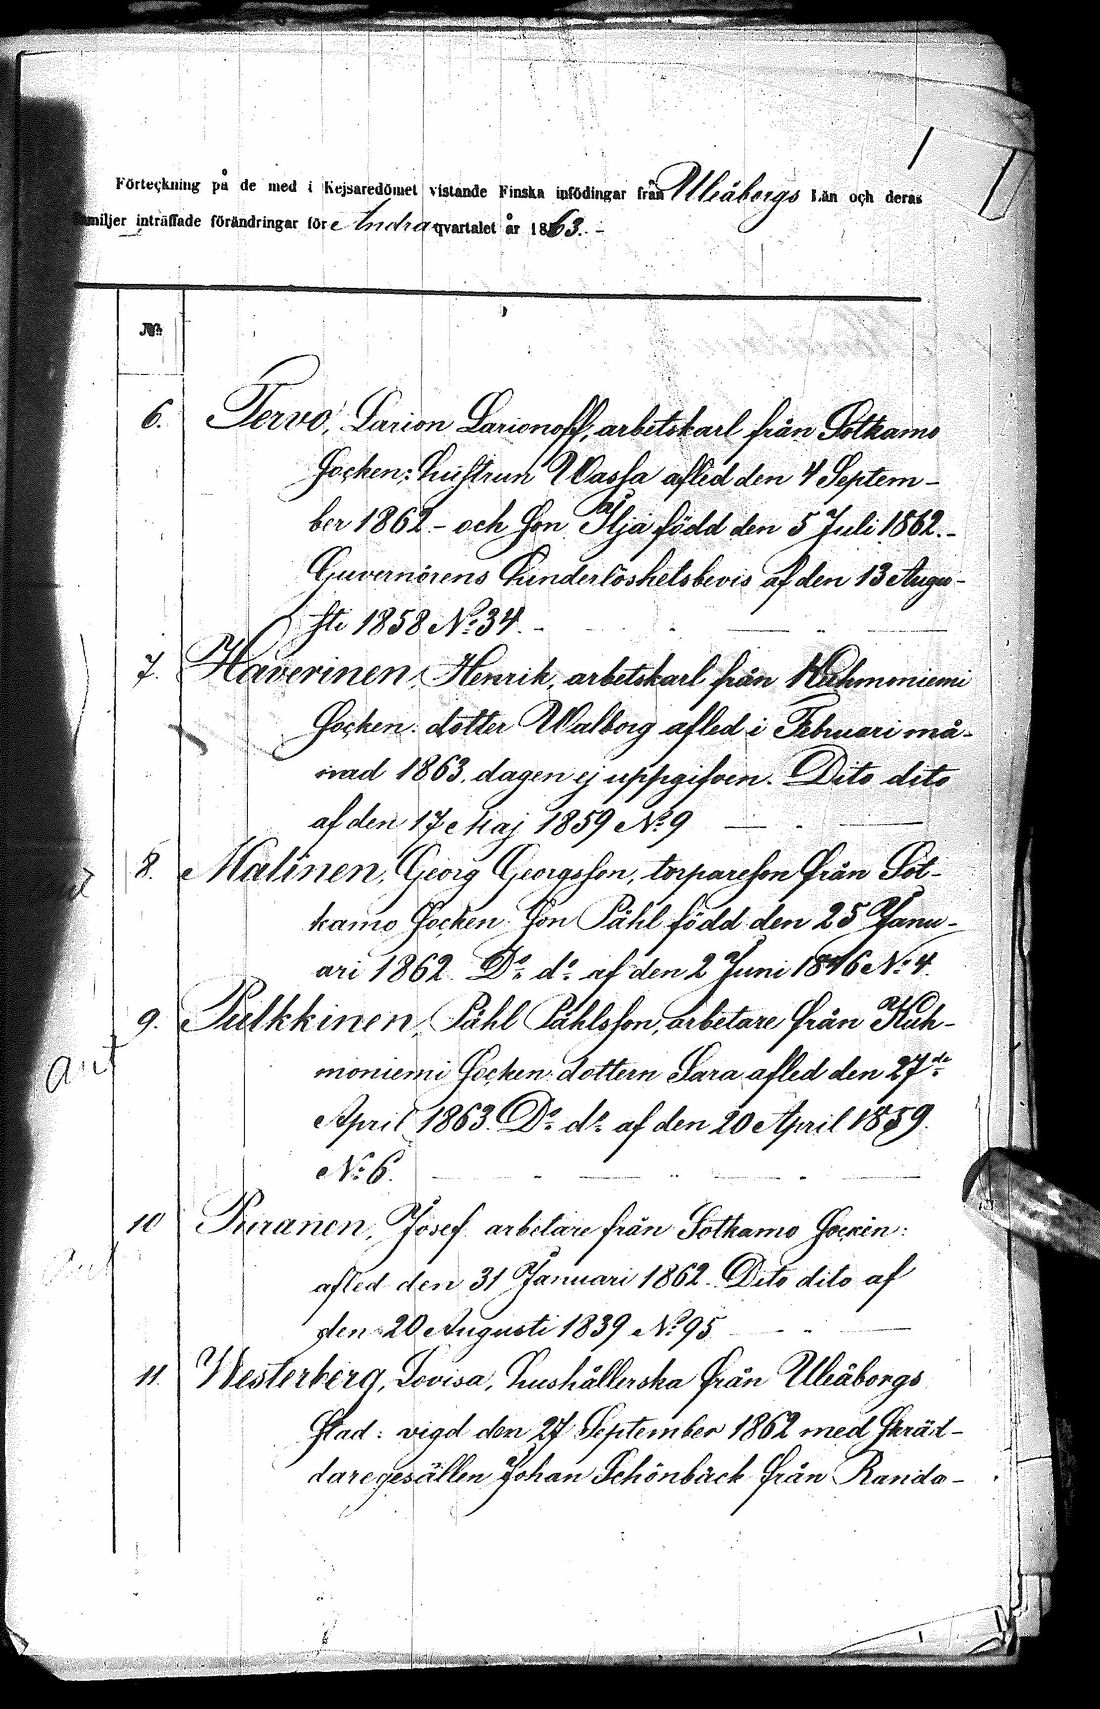 Förteckning på de med i Kejsaredömet vistande Finska infödingar från Uleåborgs Län och deras
familjer inträffade förändringar för Andra qvartalet år 1863. -
№
6. Tervo, Larion Larionoff, arbetskarl från Sotkamo
Socken: hustrun Wassa afled den 4 Septem-
ber 1862 - och son Ilja född den 5 Juli 1862. -
Guvernörens hinderlöshetsbevis af den 13 Augu-
sti 1858 No 34. -
7. Haverinen, Henrik, arbetskarl från Kuhmoniemi
Socken: dotter Walborg afled i Februari må-
nad 1863, dagen ej uppgifven. Dito dito
af den 17 Maj 1859 No 9
8. Malinen, Georg Georgsson, torpareson från Sot-
kamo Socken: Son Påhl född den 25 Janu-
ari 1862. Do do af den 2 Juni 1846 No 4.
9. Pulkkinen, Påhl Påhlsson, arbetare från Kuh-
moniemi Socken: dottern Sara afled den 27de
April 1863. Do do af den 20 April 1859.
No 6.
10 Puranen, Josef arbetare från Sotkamo Socken:
afled den 31 Januari 1862. Dito dito af
den 20 Augusti 1839 No 95
11. Westerberg, Lovisa, hushållerska från Uleåborgs
Stad: vigd den 27 September 1862 med Skräd-
daregesällen Johan Schönbäck från Randa-